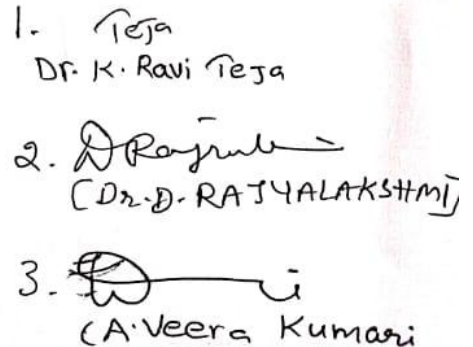 1. Teja
Dr. K. Ravi Teja
2. D Rajyalakshmi
(Dr. D. RAJYALAKSHMI)
3.
(A. Veera Kumari